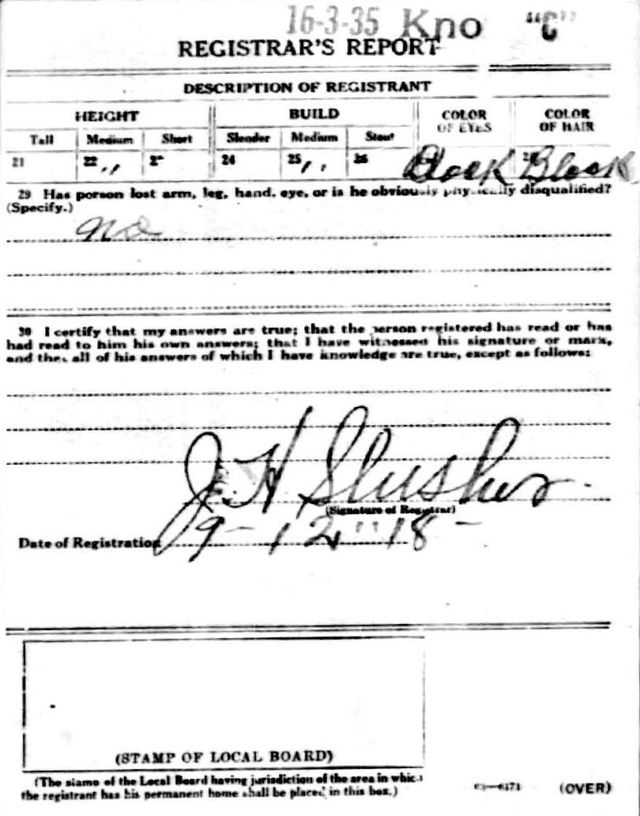 16-3-35 Kno "C"
REGISTRAR'S REPORT
DESCRIPTION OF REGISTRANT
HEIGHT BUILD COLOR OF EYES COLOR OF HAIR
Tall Medium Short Slender Medium Stout
21 22 ,, 24 25 ,, 26 Black Black
29 Has person lost arm, leg, hand, eye, or is he obviously physically disqualified?
(Specify.)
No
30 I certify that my answers are true; that the person registered has read or has
had read to him his own answers; that I have witnessed his signature or mark,
and that all of his answers of which I have knowledge are true, except as follows:
J. H Slusher
(Signature of Registrar)
Date of Registration 9 - 12 " 18 -
(STAMP OF LOCAL BOARD)
(The stamp of the Local Board having jurisdiction of the area in which
the registrant has his permanent home shall be placed in this box.)
03—6171 (OVER)